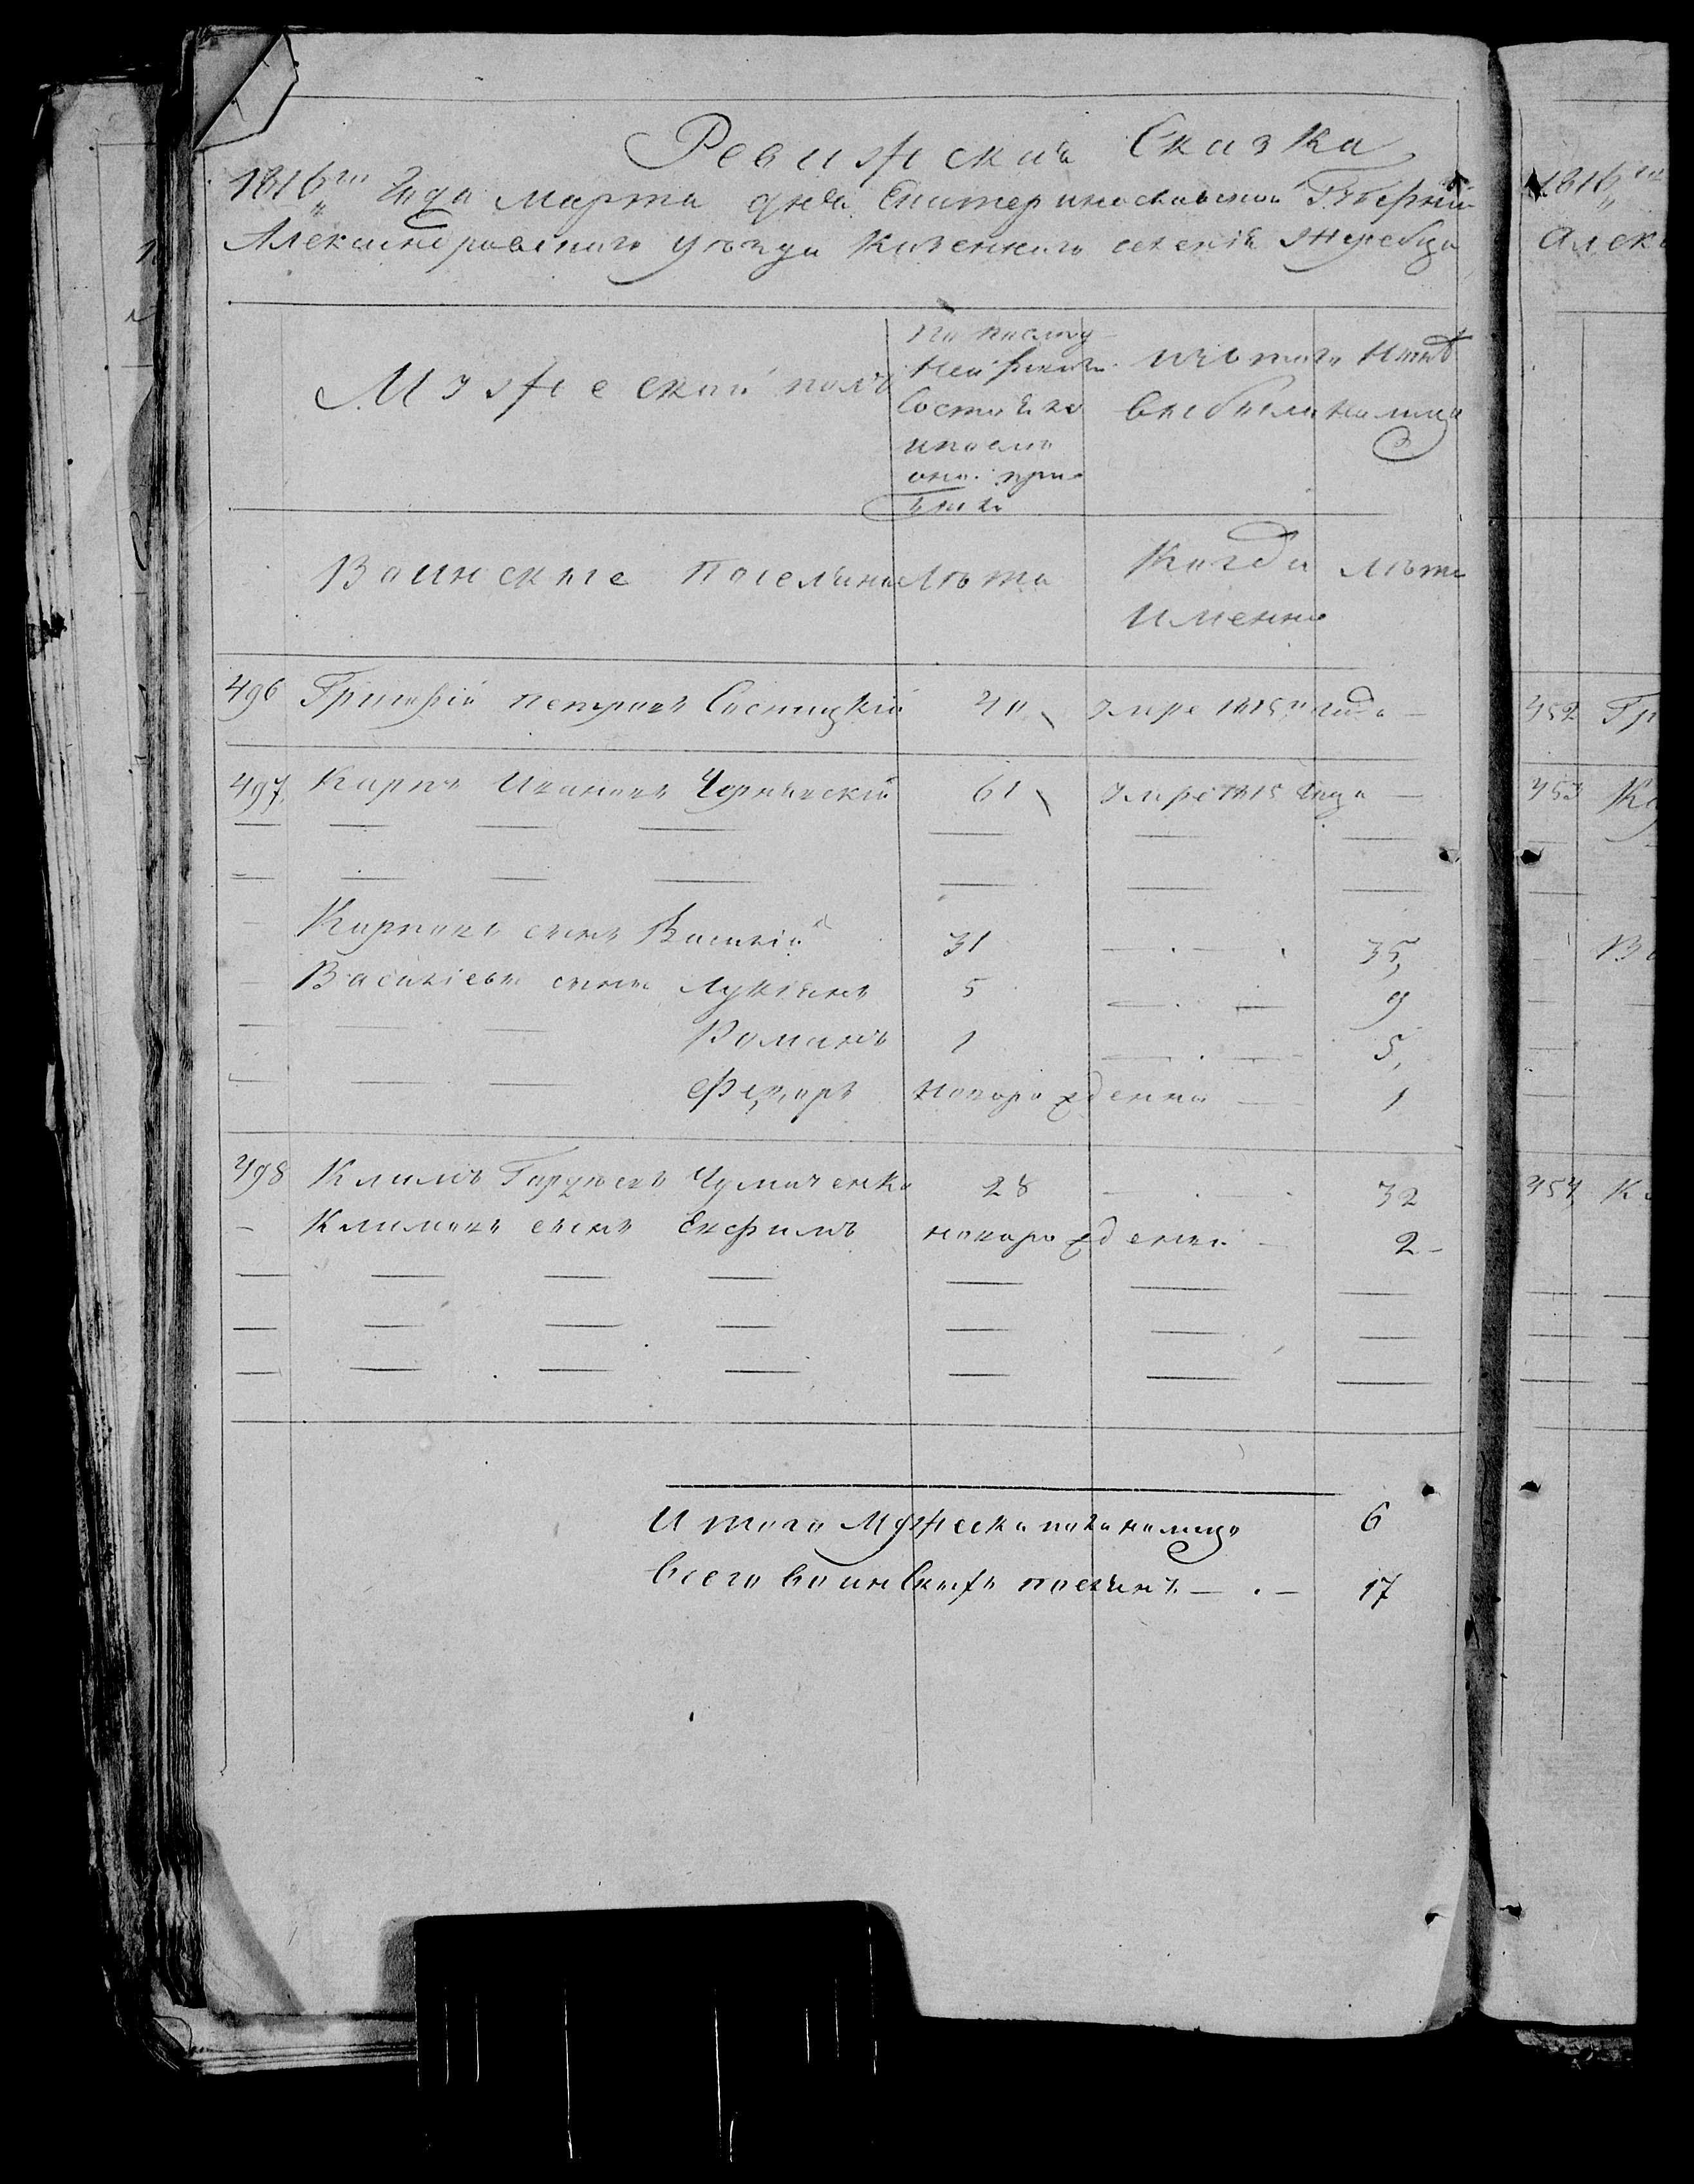 Ревижская Сказка
1816го Года марта дня Екатеринославской Губернии
Александровского уезда Казенного селения Жеребца
Мужеской полъ
По послед
ней ревизии
Состояло
и после
оной при
было
Изъ того
выбыли
Ныне
на лицо
Воинские Поселяне
Лѣта
Когда
Именно
Лѣта
496 Григорій Петровъ Сосницкій 40 Умре 1815 года —
497 Карпъ Ивановъ 61 Умре 1815 года —
Карповъ сынъ Василій 31 35,
Васильевы сыны Лукіянъ 5 9
Романъ 1 5,
Федоръ новорожденны — 1
498 Климъ Чумаченко 28 32
Климовъ сынъ Екфимъ новорожденны — 2 -
Итого Мужеска пола на лицо 6
Всего воинскихъ поселянъ — . — 17
1816го
Алек
452 Гр
453 Ка
Ва
454 Кл